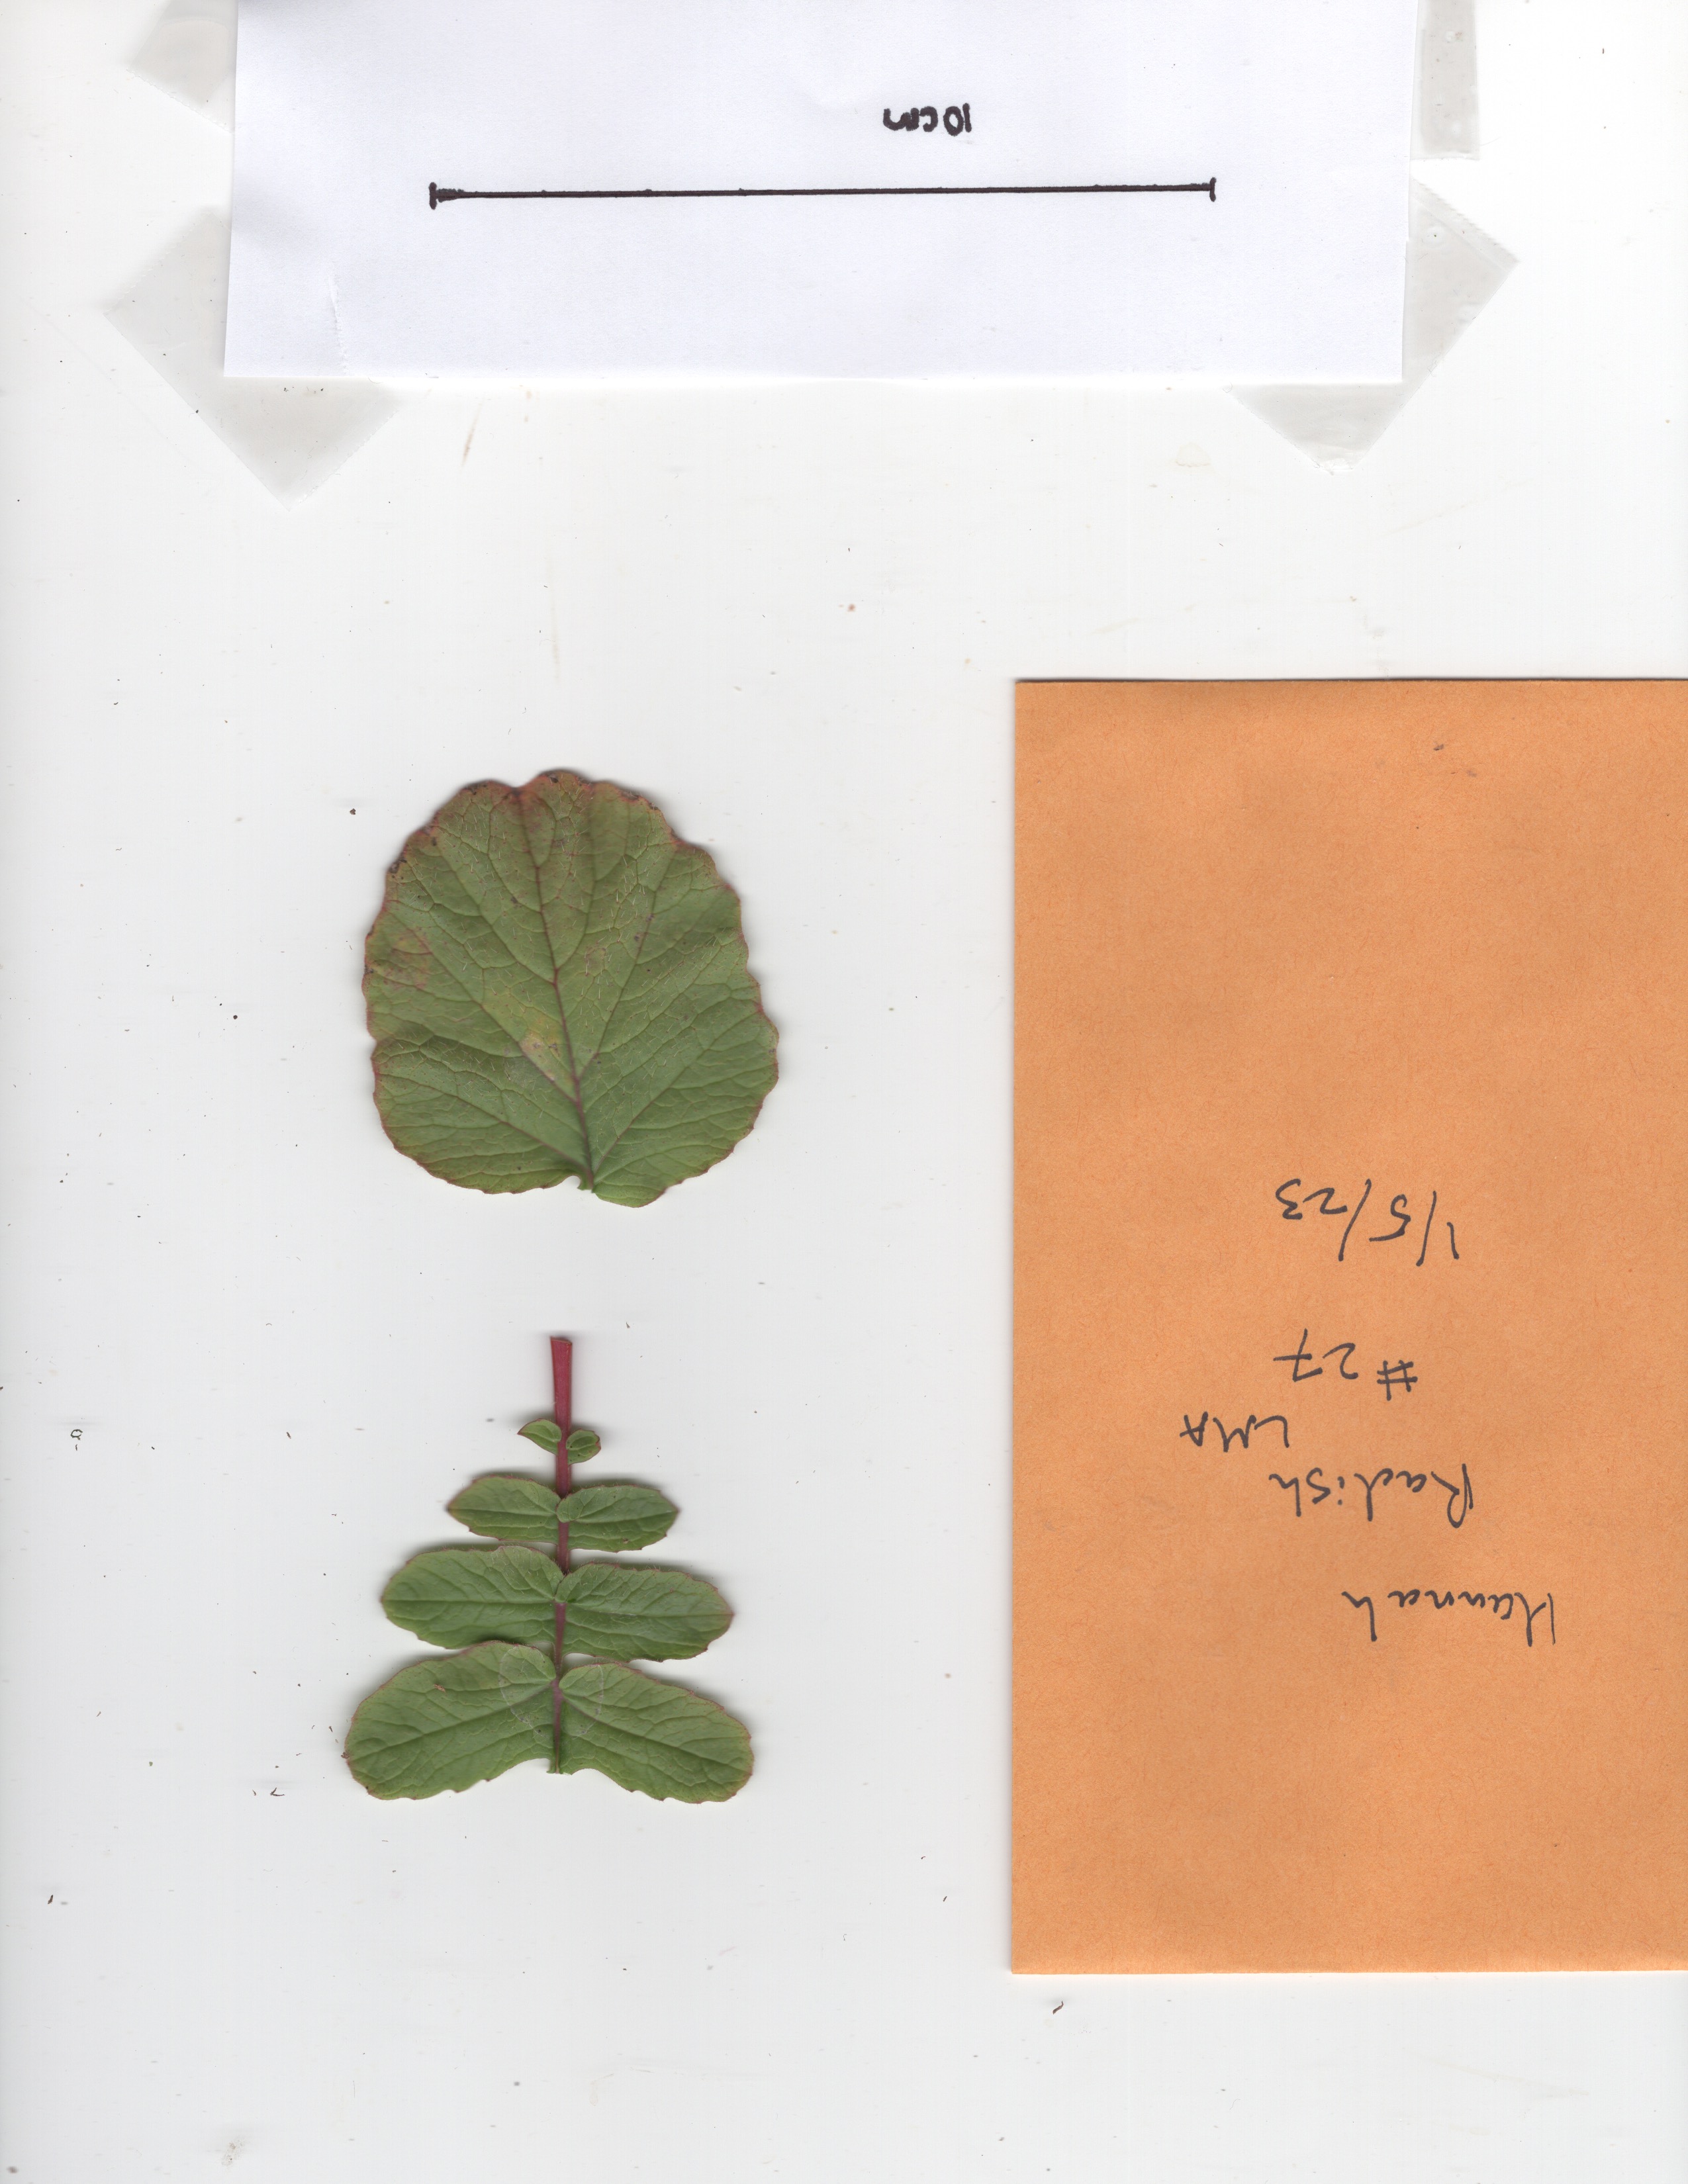 10cm
Hannah
Radish
LMA
#27
1/5/23